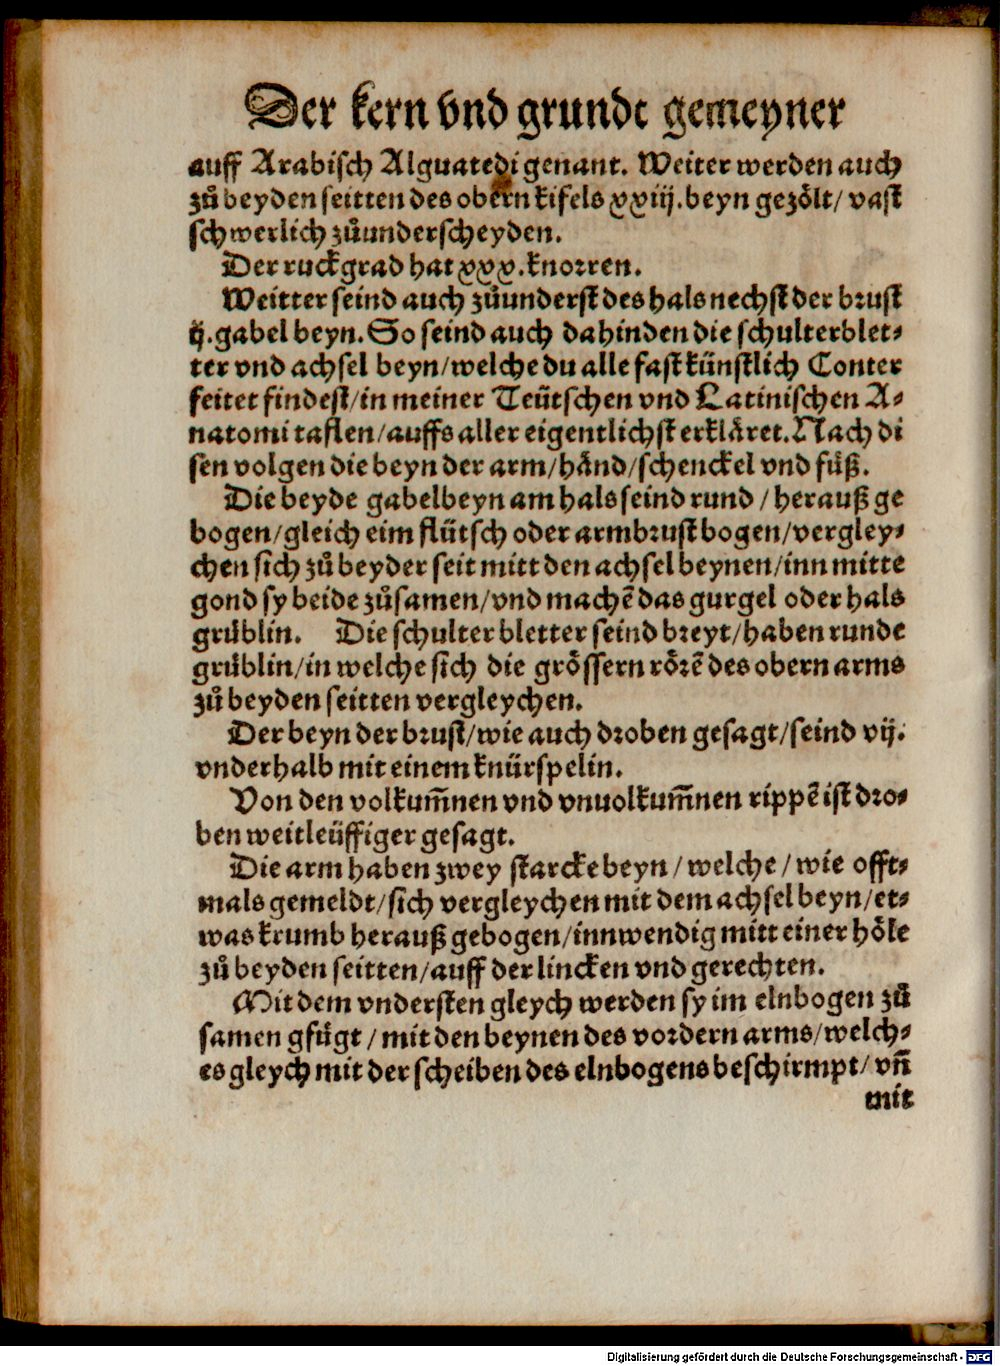 Der kern vnd grundt gemeyner
auff Arabisch Alguatedi genant. Weiter werden auch
zů beyden seitten des obern kifels xxiij. beyn gezölt/ vast
schwerlich zůunderscheyden.
Der ruckgrad hat xxx. knorren.
Weitter seind auch zůunderst des hals nechst der brust
ij. gabel beyn. So seind auch dahinden die schulterblet⸗
ter vnd achsel beyn/welche du alle fast künstlich Conter
feitet findest/in meiner Teütschen vnd Latinischen A⸗
natomi taflen/auffs aller eigentlichst erkläret. Nach di
sen volgen die beyn der arm/händ/schenckel vnd füß.
Die beyde gabelbeyn am hals seind rund /herauß ge
bogen/gleich eim flütsch oder armbrust bogen/vergley⸗
chen sich zů beyder seit mitt den achsel beynen/inn mitte
gond sy beide zůsamen/vnd machē das gurgel oder hals
grüblin. Die schulter bletter seind breyt/haben runde
grüblin/in welche sich die grössern rörē des obern arms
zů beyden seitten vergleychen.
Der beyn der brust/wie auch droben gesagt/seind vij.
vnderhalb mit einem knürspelin.
Von den volkum̄nen vnd vnuolkum̄nen rippē ist dro⸗
ben weitleüffiger gesagt.
Die arm haben zwey starcke beyn /welche /wie offt⸗
mals gemeldt/sich vergleychen mit dem achsel beyn/et⸗
was krumb herauß gebogen/innwendig mitt einer höle
zů beyden seitten/auff der lincken vnd gerechten.
Mit dem vndersten gleych werden sy im elnbogen zů
samen gfügt /mit den beynen des vordern arms/welch⸗
es gleych mit der scheiben des elnbogens beschirmpt/ vn̄
mit
Digitalisierung gefördert durch die Deutsche Forschungsgemeinschaft - DFG